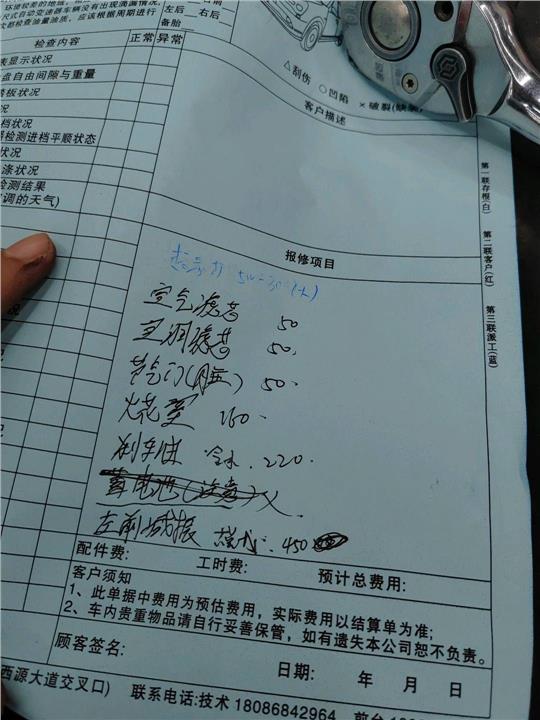 环境较差的地
尺式自动变速器车辆没有出现滴漏情况，
大都检查油量油质，应该根据周期进行
左后__右后
备胎
检查内容 正常 异常
表显示状况
盘自由间隙与重量
踏板状况
况
档状况
检测进档平顺状态
状况
涤状况
检测结果
调的天气)
△刮伤 ○凹陷 ×破裂(缺
客户描述
第一联存根(白) 第二联客户(红) 第三联派工(蓝)
报修项目
空气滤芯 50
空调滤芯 50
节气门 50
火花塞 160
刹车油 220
蓄电池
左前减振 450
配件费: 工时费: 预计总费用:
客户须知
1、此单据中费用为预估费用，实际费用以结算单为准;
2、车内贵重物品请自行妥善保管，如有遗失本公司恕不负责。
顾客签名:
日期: 年 月 日
西源大道交叉口) 联系电话:技术 18086842964 前台